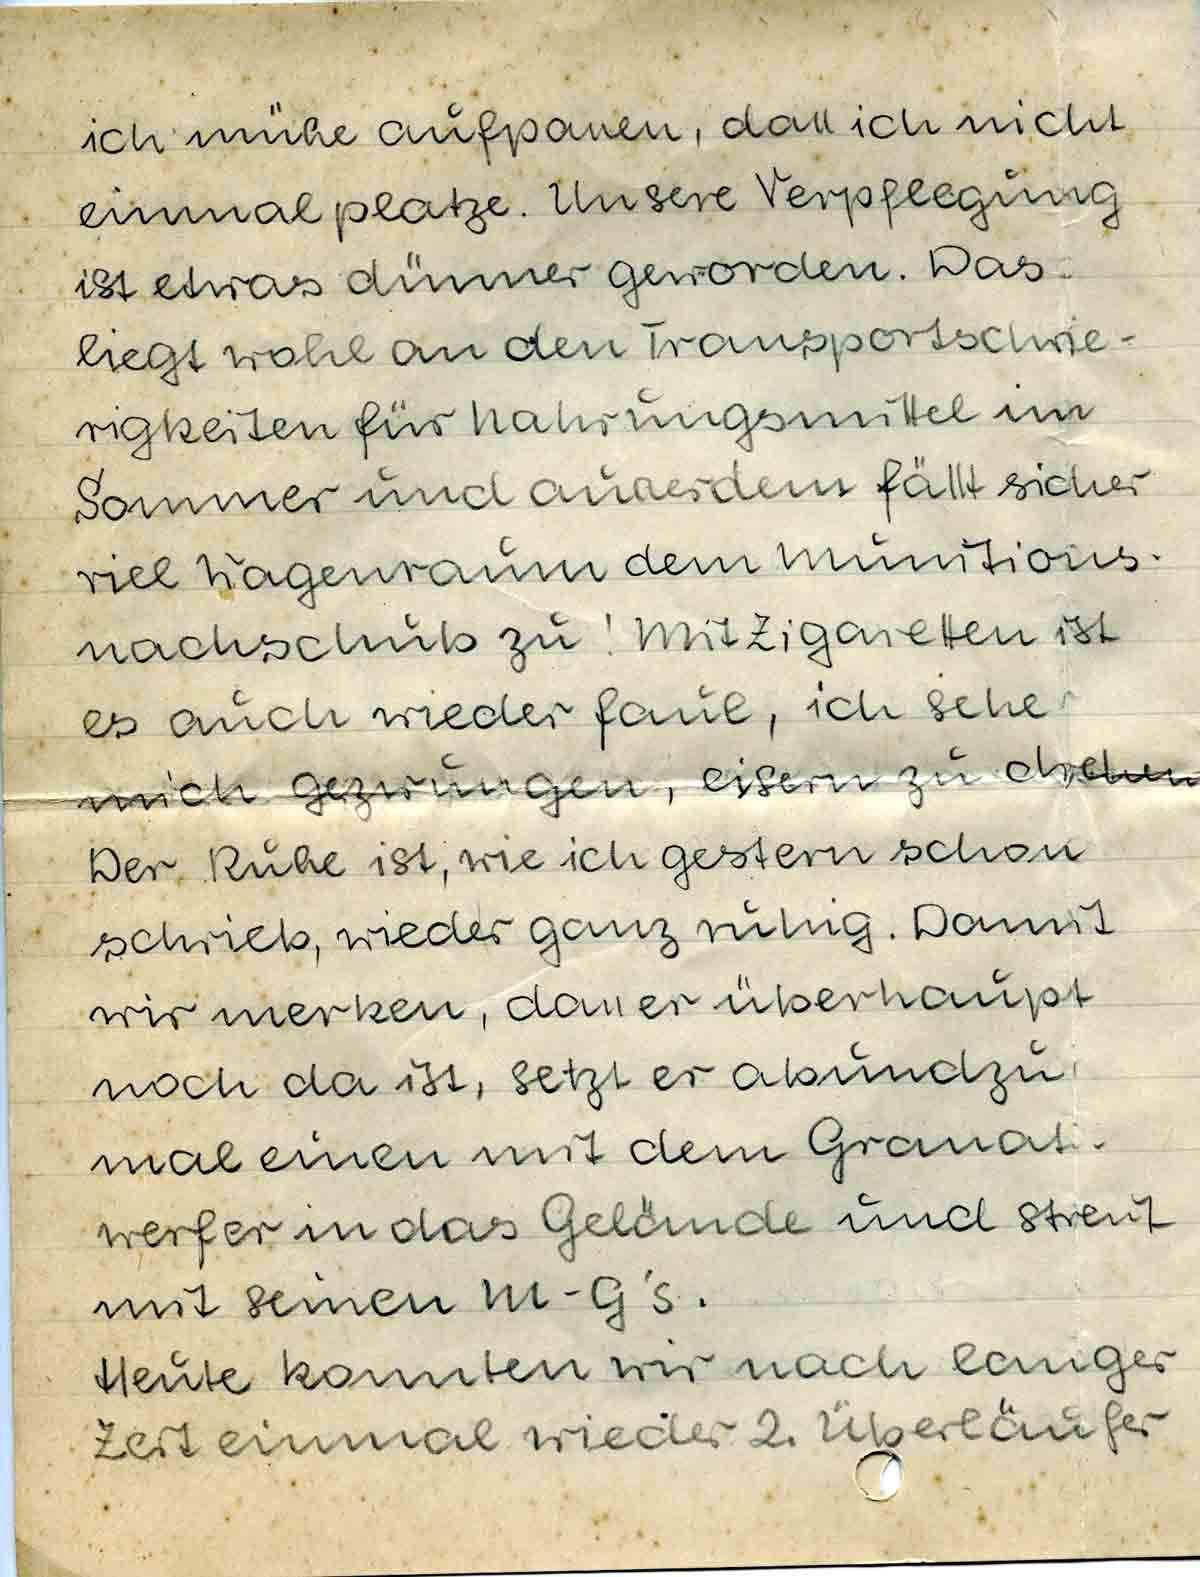 ich müsse aufpassen, dass ich nicht
einmal platze. Unsere Verpflegung
ist etwas dünner geworden. Das
liegt wohl an den Transportschwie-
rigkeiten für Nahrungsmittel im
Sommer und ausserdem fällt sicher
viel Wagenraum dem Munitions-
nachschub zu! Mit Zigaretten ist
es auch wieder faul, ich sehe
mich gezwungen, eisern zu drehen
Der Russe ist, wie ich gestern schon
schrieb, wieder ganz ruhig. Damit
wir merken, dass er überhaupt
noch da ist, setzt er abundzu
mal einen mit dem Granat-
werfer in das Gelände und streut
mit seinen M-G's.
Heute konnten wir nach langer
Zeit einmal wieder 2. Überläufer